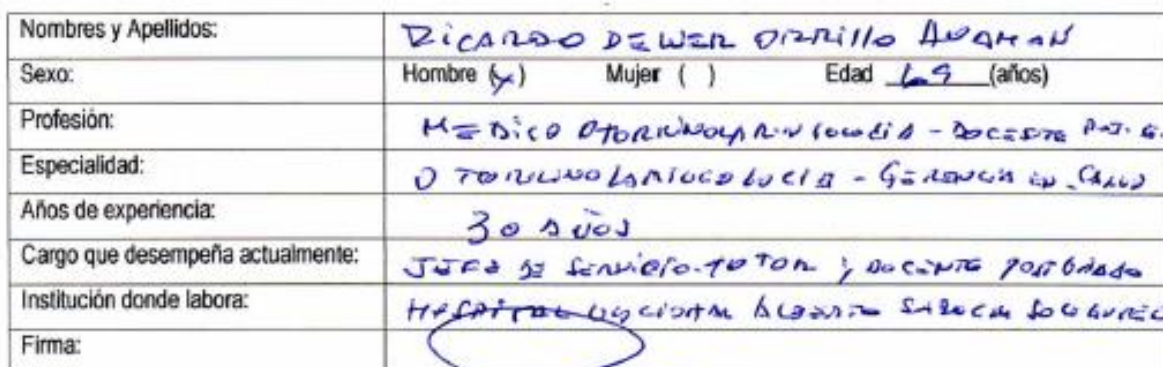 Nombres y Apellidos: RICARDO DEWER ORRILLO
Sexo: Hombre (x) Mujer ( ) Edad 69 (años)
Profesión: MEDICO OTORRINOLARINGOLOGIA - DOCENTE
Especialidad: OTORRINOLARINGOLOGIA - GERENCIA EN SALUD
Años de experiencia: 30 AÑOS
Cargo que desempeña actualmente: JEFE DE SERVICIO DOCENTE POSTGRADO
Institución donde labora: HOSPITAL NACIONAL ALBERTO SABOGAL SOLOGUREN
Firma: